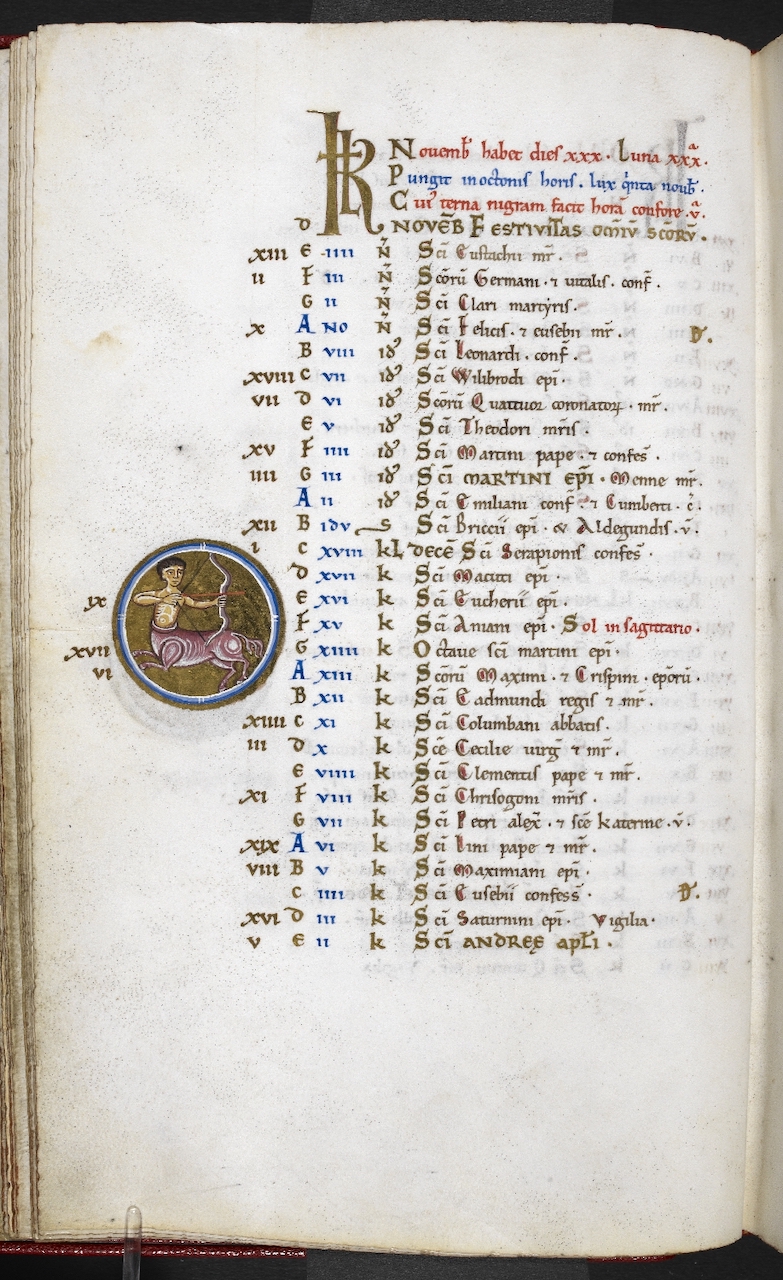 KL Novemb̄ habet dies xxx. Luna xxxᵃ.
Pungit in octonis horis. lux q̇nta noub̄.
Cui' terna nigram facit horā confore .v̄.
d NOVĒB FESTIVITAS OMIV̄ SCŌRV̄.
xiii E iiii Ñ Scī Eustachii mr̄.
ii F iii Ñ Scōrū Germani. ⁊ uitalis. conf̄.
G ii Ñ Scī Clari martyris.
x A NO Ñ Scī Felicis. ⁊ eusebii mr̄. D̄.
B viii id' Scī Leonardi. conf̄.
xviii C vii id' Scī Wilibrodi epī.
vii d vi id' Scōrū Quattuor coronatoꝝ. mr̄.
E v id' Scī Theodori mr̄is.
xv F iiii id' Scī Martini pape. ⁊ confes̄.
iiii G iii id' SCĪ MARTINI EPĪ. Menne mr̄.
A ii id' Scī Emiliani conf̄. ⁊ Cumberti. c̄.
xii B idvs Scī Briccii epī. & Aldegundis. v̄.
i C xviii kL decē Scī Serapionis confes̄.
d xvii k Scī Macuti epī.
ix E xvi k Scī Eucherii epī.
F xv k Scī Aniani epī. Sol in sagittario.
xvii G xiiii k Octaue scī martini epī.
vi A xiii k Scōrū Maximi. ⁊ Crispini. epōrū.
B xii k Scī Eadmundi regis ⁊ mr̄.
xiiii C xi k Scī Columbani abbatis.
iii d x k Scē Cecilie uirḡ ⁊ mr̄.
E viiii k Scī Clementis pape ⁊ mr̄.
xi F viii k Scī Chrisogoni mr̄is.
G vii k Scī Petri alex̄. ⁊ scē katerine. v̄.
xix A vi k Scī Lini pape ⁊ mr̄.
viii B v k Scī Maximiani epī.
C iiii k Scī Eusebii confes̄s. D̄.
xvi D iii k Scī Saturnini epī. Vigilia.
v E ii k SCĪ ANDREĘ APL̄I.